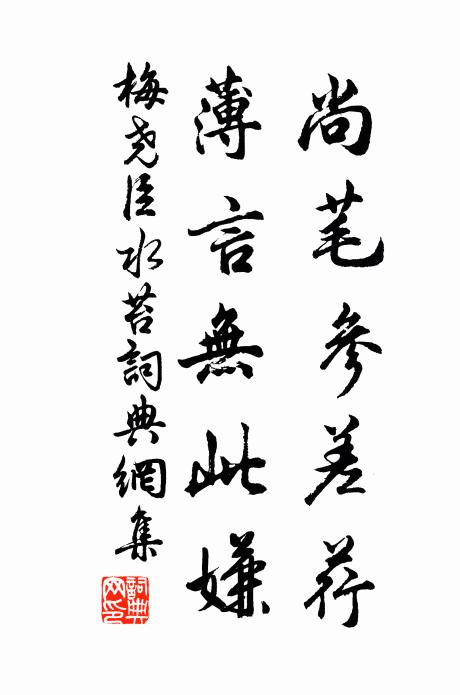 尚芼參差荇
薄言無此嫌
梅堯臣水苔詞典網集
詞典網印